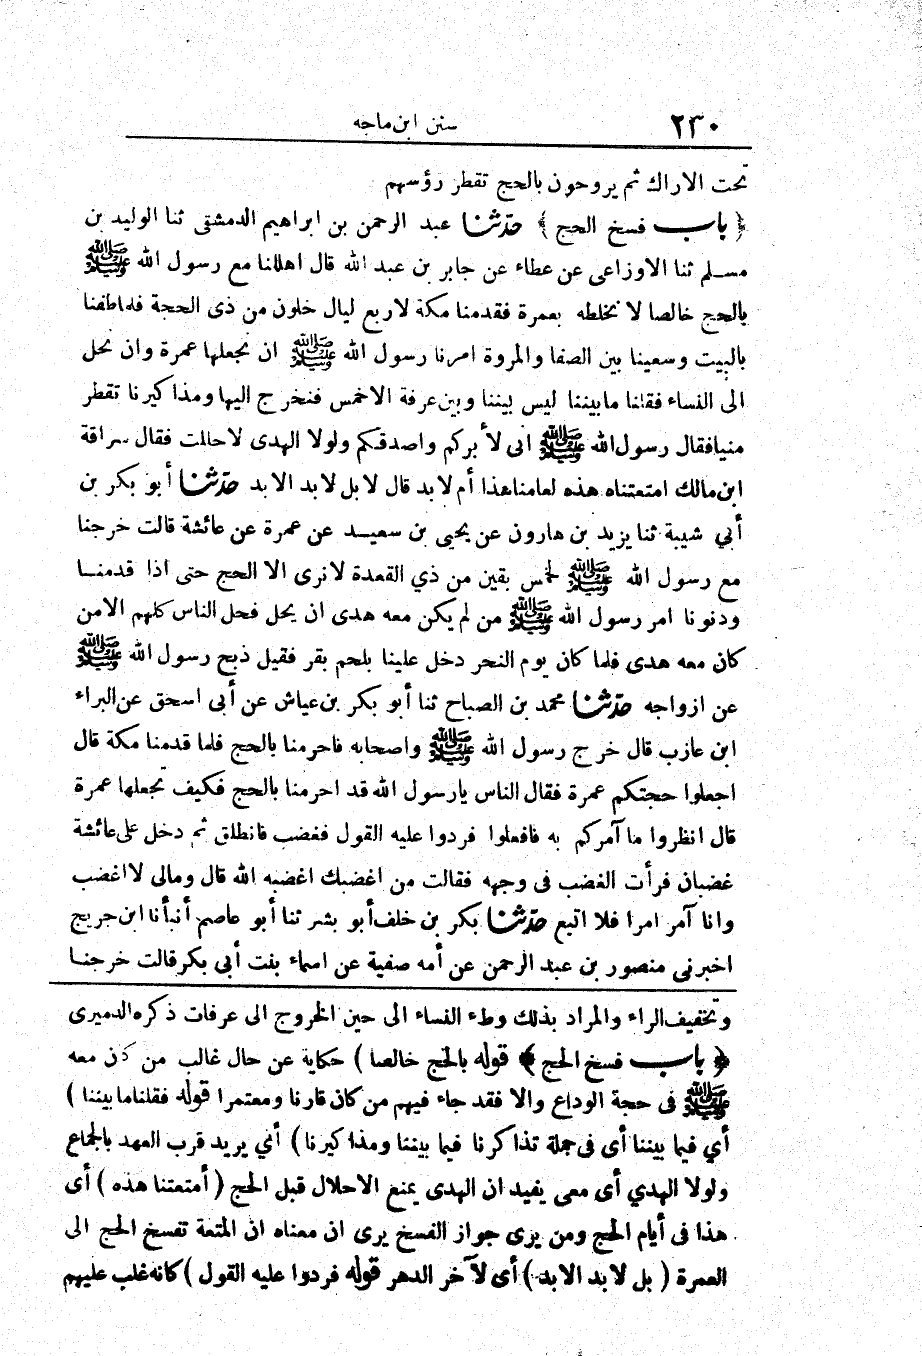 ٢٣٠ سنن ابن ماجه
تحت الاراك ثم يروحون بالحج تقطر رؤسهم
﴿ باب فسخ الحج ﴾ حدثنا عبد الرحمن بن ابراهيم الدمشقى ثنا الوليد بن
مسلم ثنا الاوزاعى عن عطاء عن جابر بن عبد الله قال اهللنا مع رسول الله ﷺ
بالحج خالصا لا نخلطه بعمرة فقدمنا مكة لاربع ليال خلون من ذى الحجة فلماطفنا
بالبيت وسعينا بين الصفا والمروة امرنا رسول الله ﷺ ان نجعلها عمرة وان نحل
الى النساء فقلنا مابيننا ليس بيننا وبين عرفة الاخمس فنخرج اليها ومذاكيرنا تقطر
منيافقال رسول الله ﷺ انى لأبركم واصدقكم ولولا الهدى لاحللت فقال سراقة
ابن مالك امتعتناهذه لعامناهذا أم لابد قال لا بل لابد الابد حدثنا أبو بكر بن
أبي شيبة ثنا يزيد بن هارون عن يحيى بن سعيد عن عمرة عن عائشة قالت خرجنا
مع رسول الله ﷺ لخمس بقين من ذي القعدة لا نرى الا الحج حتى اذا قدمنا
ودنونا امر رسول الله ﷺ من لم يكن معه هدى ان يحل فحل الناس كلهم الامن
كان معه هدى فلما كان يوم النحر دخل علينا بلحم بقر فقيل ذبح رسول الله ﷺ
عن ازواجه حدثنا محمد بن الصباح ثنا أبو بكر بن عياش عن أبى اسحق عن البراء
ابن عازب قال خرج رسول الله ﷺ واصحابه فاحرمنا بالحج فلما قدمنا مكة قال
اجعلوا حجتكم عمرة فقال الناس يارسول الله قد احرمنا بالحج فكيف نجعلها عمرة
قال انظروا ما آمركم به فافعلوا فردوا عليه القول فغضب فانطلق ثم دخل على عائشة
غضبان فرأت الغضب فى وجهه فقالت من اغضبك اغضبه الله قال ومالى لا اغضب
وانا آمر امرا فلا اتبع حدثنا بكر بن خلف أبو بشر ثنا أبو عاصم أنبأنا ابن جريج
اخبرنى منصور بن عبد الرحمن عن أمه صفية عن اسماء بنت أبى بكر قالت خرجنا
وتخفيف الراء والمراد بذلك وطء النساء الى حين الخروج الى عرفات ذكره الدميرى
﴿ باب فسخ الحج ﴾ قوله بالحج خالصا ) حكاية عن حال غالب من كان معه
ﷺ فى حجة الوداع والا فقد جاء فيهم من كان قارنا ومعتمرا قوله فقلنامابيننا )
أي فيما بيننا أى فى جملة تذاكرنا فيما بيننا ومذاكيرنا ) أني يريد قرب العهد بالجماع
ولولا الهدي أى معى يفيد ان الهدى يمنع الاحلال قبل الحج ( أمتعتنا هذه ) أى
هذا فى أيام الحج ومن يرى جواز الفسخ يرى ان معناه ان المتعة تفسخ الحج الى
العمرة ( بل لابد الابد ) أى لآخر الدهر قوله فردوا عليه القول ) كانه غلب عليهم